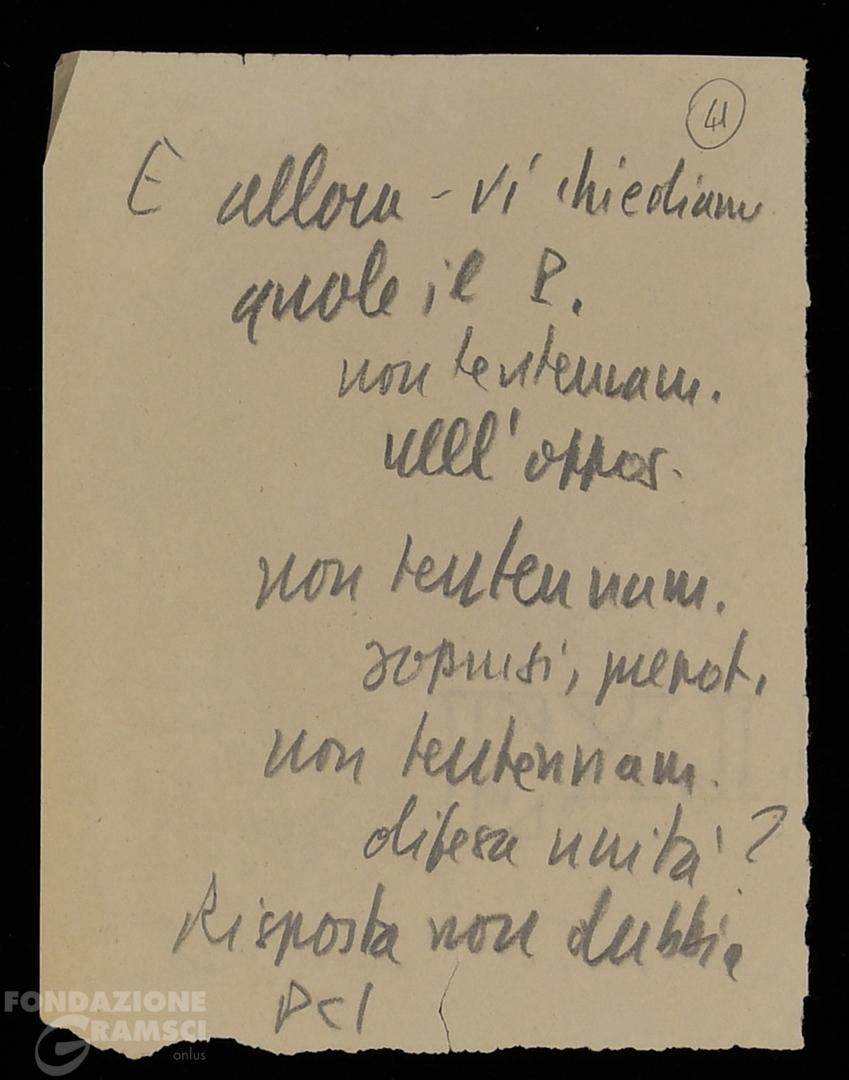 41
E allora - vi chiediamo
quale il P.
non tentennam.
nell'oppos.
non tentennam.
soprusi, prepot.
non tentennam.
difesa unità?
Risposta non dubbia
PCI
FONDAZIONE
GRAMSCI
onlus